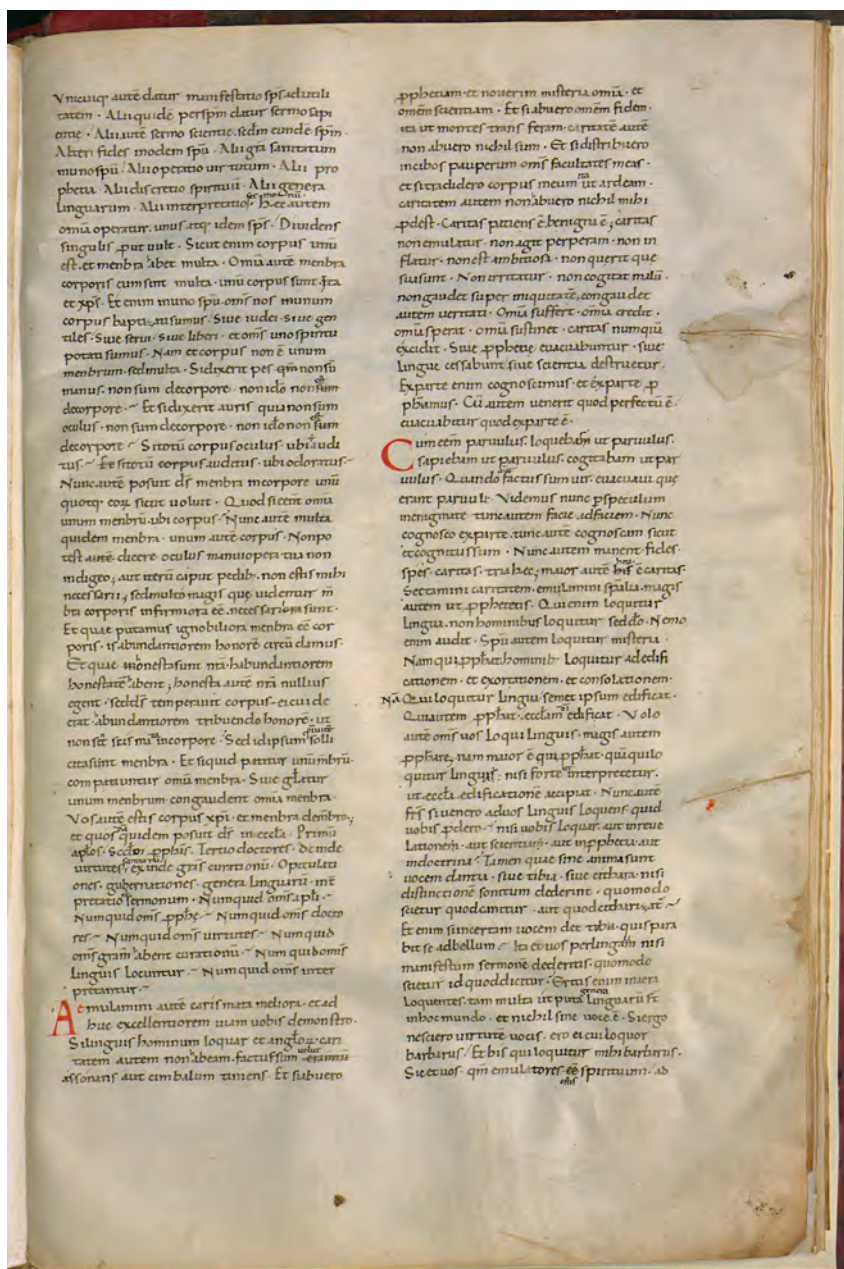 Vnicuiq· autē datur manifestatio sps̄ adutili
tatem · Alii quidē perspm̄ datur sermo sapi
entie · Alii autē sermo scientie. sedm̄ eundē spm̄ ·
Alteri fides ineodem spū · Alii gr̄a sanitatum
inunospū · Alii operatio uirtutum · Alii pro
phetia · Alii discretio spirituū · Alii genera
linguarum · Alii interpretatio
Hec autem
omīa operatur. unus atq· idem sps̄ · Diuidens
singulis put uult · Sicut enim corpus unū
est. et menbra abet multa · Omīa autē menbra
corporis cum sint multa · unū corpus sunt · Ita
et xps̄ · Et enim inuno spū · oms̄ nos inunum
corpus baptizati sumus · Siue iudei · siue gen
tiles · Siue serui · siue liberi · et oms̄ uno spiritu
potati sumus · Nam et corpus non ē unum
menbrum. sed multa · Si dixerit pes · qm̄ non sū
manus. non sum decorpore · non idō non sum
decorpore · Et si dixerit auris quia non sum
oculus · non sum decorpore · non idō non sum
decorpore · Si totū corpus oculus · ubi audi
tus · Et si totū corpus auditus · ubi odoratus ·
Nunc autē posuit ds̄ menbra incorpore unū
quotq· eoꝝ sicut uoluit · Quod si cent omīa
unum menbrū · ubi corpus · Nunc autē multa
quidem menbra · unum autē corpus · Non po
test autē dicere oculus manui opera tua non
indigeo; aut iterū caput pedib; non estis mihi
necessarii; sed multo magis que uidentur m̄
bra corporis infirmiora eē. necessariora sunt ·
Et quae putamus ignobiliora menbra eē cor
poris · is abundantiorem honorē circū damus ·
Et quae inhonesta sunt nr̄a · habundantiorem
honestatē abent; honesta autē nr̄a nullius
egent · sed ds̄ temperauit corpus · ei cui de
erat · abundantiorem tribuendo honorē · ut
non sit scisma incorpore · Sed id ipsum solli
cita sunt menbra · Et si quid patitur unū m̄brū ·
compatiuntur omīa menbra · Siue gl̄atur
unum menbrum · congaudent omīa menbra ·
Vos autē estis corpus xpī · et menbra demb̄ro;
et quos quidem posuit ds̄ in eccl̄a · Primū
apl̄os · Sedo pphis̄ · Tertio doctores · Deinde
virtutes, exinde gr̄as curationū · Opitulati
ones · gubernationes · genera linguarū · int̄
pretatio sermonum · Numquid oms̄ apl̄i ·
Numquid oms̄ pphē · Numquid oms̄ docto
res · Numquid oms̄ uirtutes · Numquid
oms̄ gram̄ abent curationū · Numquid oms̄
linguis locuntur · Numquid oms̄ inter
pretantur ·
Aemulamini autē carismata meliora · et ad
huc excellentiorem uiam uobis demonstro ·
Si linguis hominum loquar et angl̄oꝝ · cari
tatem autem non abeam. factus sum eramtū
assonans aut cimbalum tiniens · Et si abuero
pphetiam · et nouerim misteria omīa · et
omēm scientiam · Et si abuero omēm fidem ·
ita ut montes trans feram · caritatē autē
non abuero nichil sum · Et si distribuero
incibos pauperum oms̄ facultates meas ·
et si tradidero corpus meum ita ut ardeam ·
caritatem autem non abuero nichil mihi
pdest · Caritas patiens ē benigna ē; caritas
non emulatur · non agit perperam · non in
flatur · non est ambitiosa · non querit que
sua sunt · Non irritatur · non cogitat malū ·
non gaudet super iniquitatē, congaudet
autem ueritati · Omīa suffert · omīa credit ·
omīa sperat · omīa sustinet · caritas numquā
excidit · Siue pphetie euacuabuntur · siue
lingue cessabunt siue scientia destruetur ·
Ex parte enim cognoscimus · et ex parte p
phamus · Cū autem uenerit quod perfectū ē ·
euacuabitur quod exparte ē ·
Cum eēm paruulus. loquebam ut paruulus ·
sapiebam ut paruulus · cogitabam ut par
uulus · Quando factus sum uir. euacuaui que
erant paruuli · Videmus nunc pspeculum
inenigmate tunc autem facie adfaciem · Nunc
cognosco exparte. tunc autē cognoscam sicut
et cognitus sum · Nunc autem manent fides ·
spes · caritas · tria hec; maior autē his ē caritas ·
Sectamini caritatem. emulamini spālia · magis
autem ut pphetetis · Qui enim loquitur
lingua. non hominibus loquitur sed dō · Nemo
enim audit · Spū autem loquitur misteria ·
Nam qui pphat hominib; loquitur ad edifi
cationem · et exortationem · et consolationem ·
NĀ Qui loquitur lingua · semet ipsum edificat ·
Qui autem pphat · eccl̄am edificat · Volo
autē oms̄ uos loqui linguis · magis autem
pphare; nam maior ē qui pphat · quā qui lo
quitur linguis; nisi forte interpretetur.
ut eccl̄a edificationē accipiat · Nunc autē
frs̄ si uenero aduos linguis loquens · quid
uobis pdero · nisi uobis loquar. aut in reue
lationem · aut scientiam · aut inpphetia · aut
indoctrina · Tamen quae sine anima sunt
uocem dantia · siue tibia · siue cithara · nisi
distinctionē sonitum dederint · quomodo
scietur quod canitur · aut quod citharizatē ·
Et enim si incertam uocem det tibia · quis para
bit se adbellum · Ita et uos per linguam nisi
manifestum sermonē dederitis · quomodo
scietur id quod dicitur · Eritis enim inaera
loquentes · tam multa ut puta genera linguarū st̄
inhoc mundo · et nichil sine uoce ē · Si ergo
nesciero uirtutē uocis · ero ei cui loquor
barbarus · Et his qui loquitur mihi barbarus ·
Sic et uos · qm̄ emulatores estis spirituum · ad